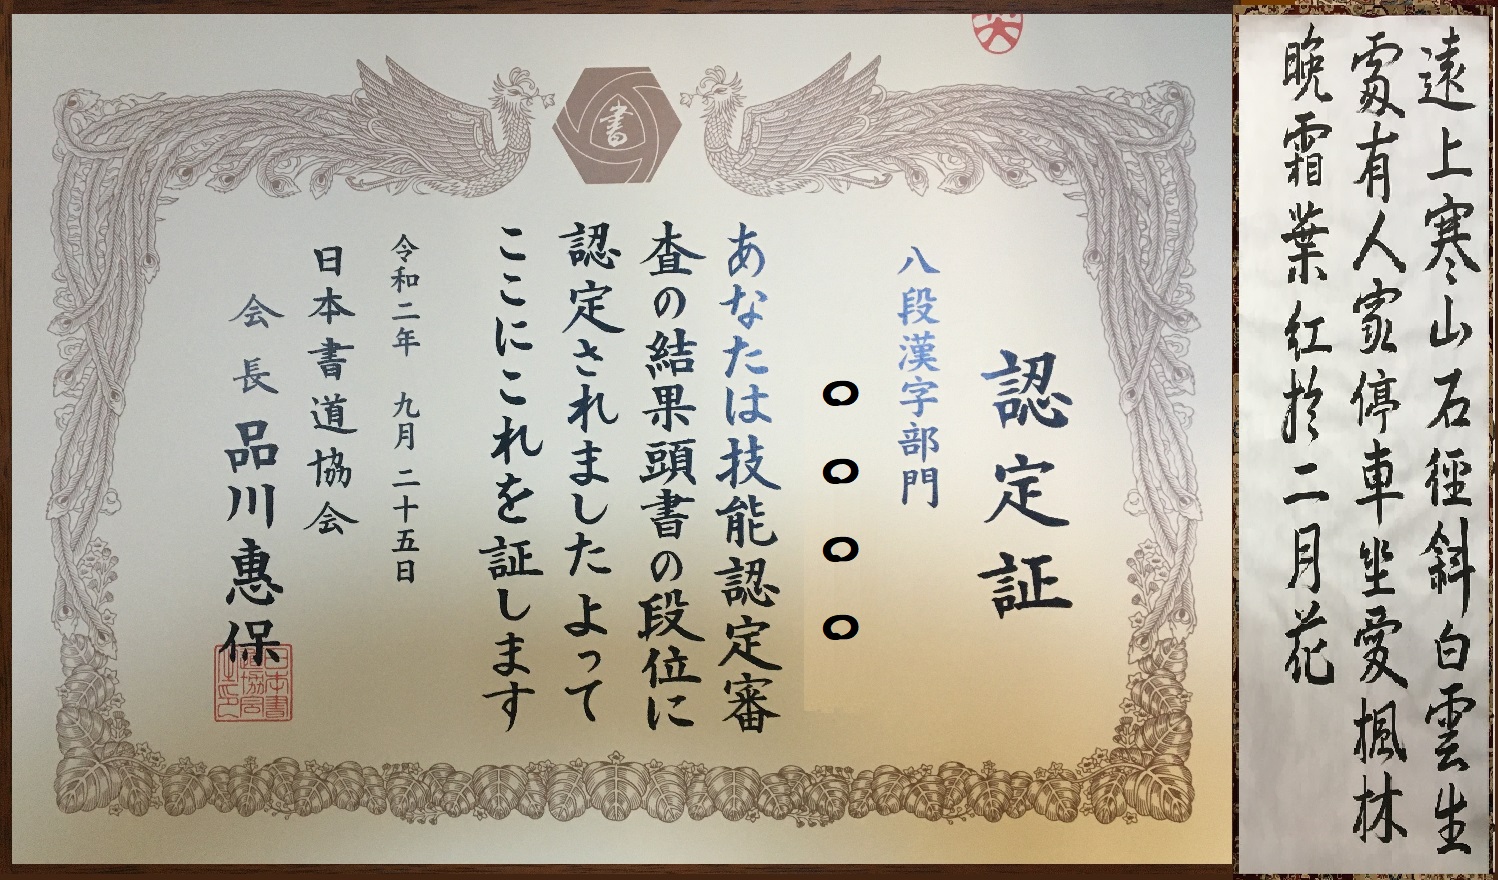 書
認定証
八段漢字部門
〇〇〇〇
あなたは技能認定審
査の結果頭書の段位に
認定されましたよって
ここにこれを証します
令和二年 九月二十五日
日本書道協会
会長 品川惠保
遠上寒山石徑斜白雲生
處有人家停車坐愛楓林
晩霜葉紅於二月花